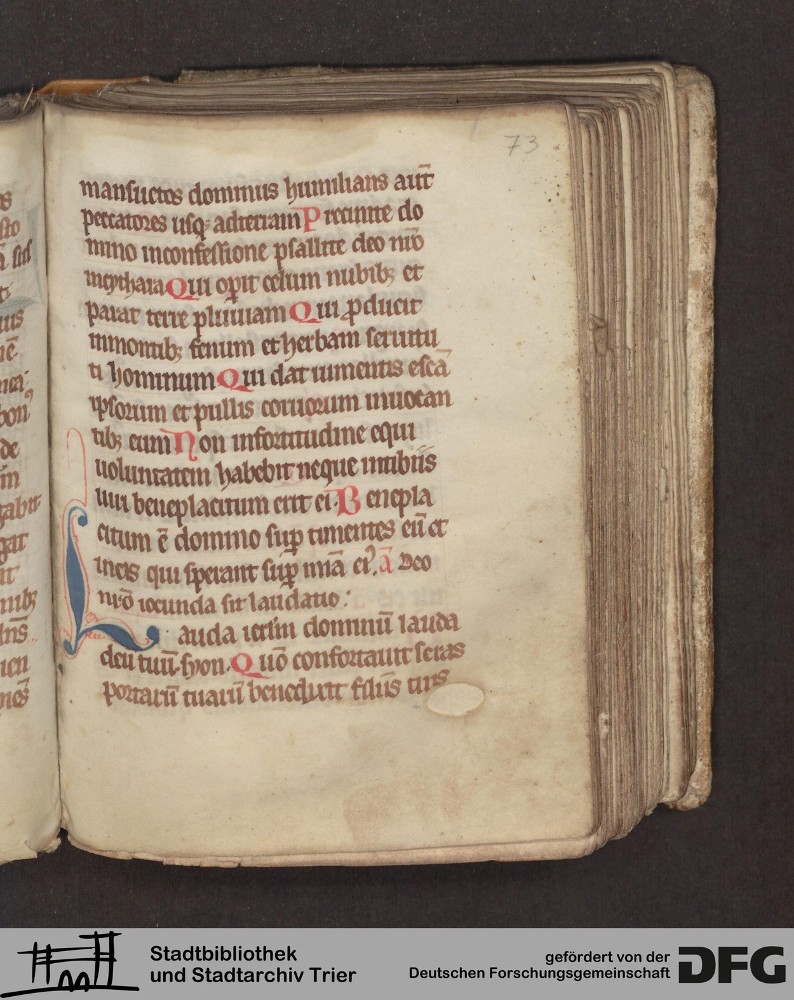 73
mansuetos dominus humilians aut̄
peccatores usq; ad terram Precinite do
mino in confessione psallite deo nr̄o
in cythara Qui oꝑit celum nubib; et
parat terre pluuiam Qui ꝓducit
in montib; fenum et herbam seruitu
ti hominum Qui dat iumentis escā
ipsorum et pullis coruorum inuocan
tib; eum Non in fortitudine equi
uoluntatem habebit neque in tibiis
uiri beneplacitum erit ei. Benepla
citum ē domino suꝑ timentes eū et
in eis qui sperant suꝑ mīa eiꝰ. ā Deo
nr̄o iocunda sit laudatio:
Lauda ierlm̄ dominū lauda
deū tuū syon. Quō confortauit seras
portarū tuarū benedixit filiis tuis
Stadtbibliothek
und Stadtarchiv Trier
gefördert von der
Deutschen Forschungsgemeinschaft
DFG